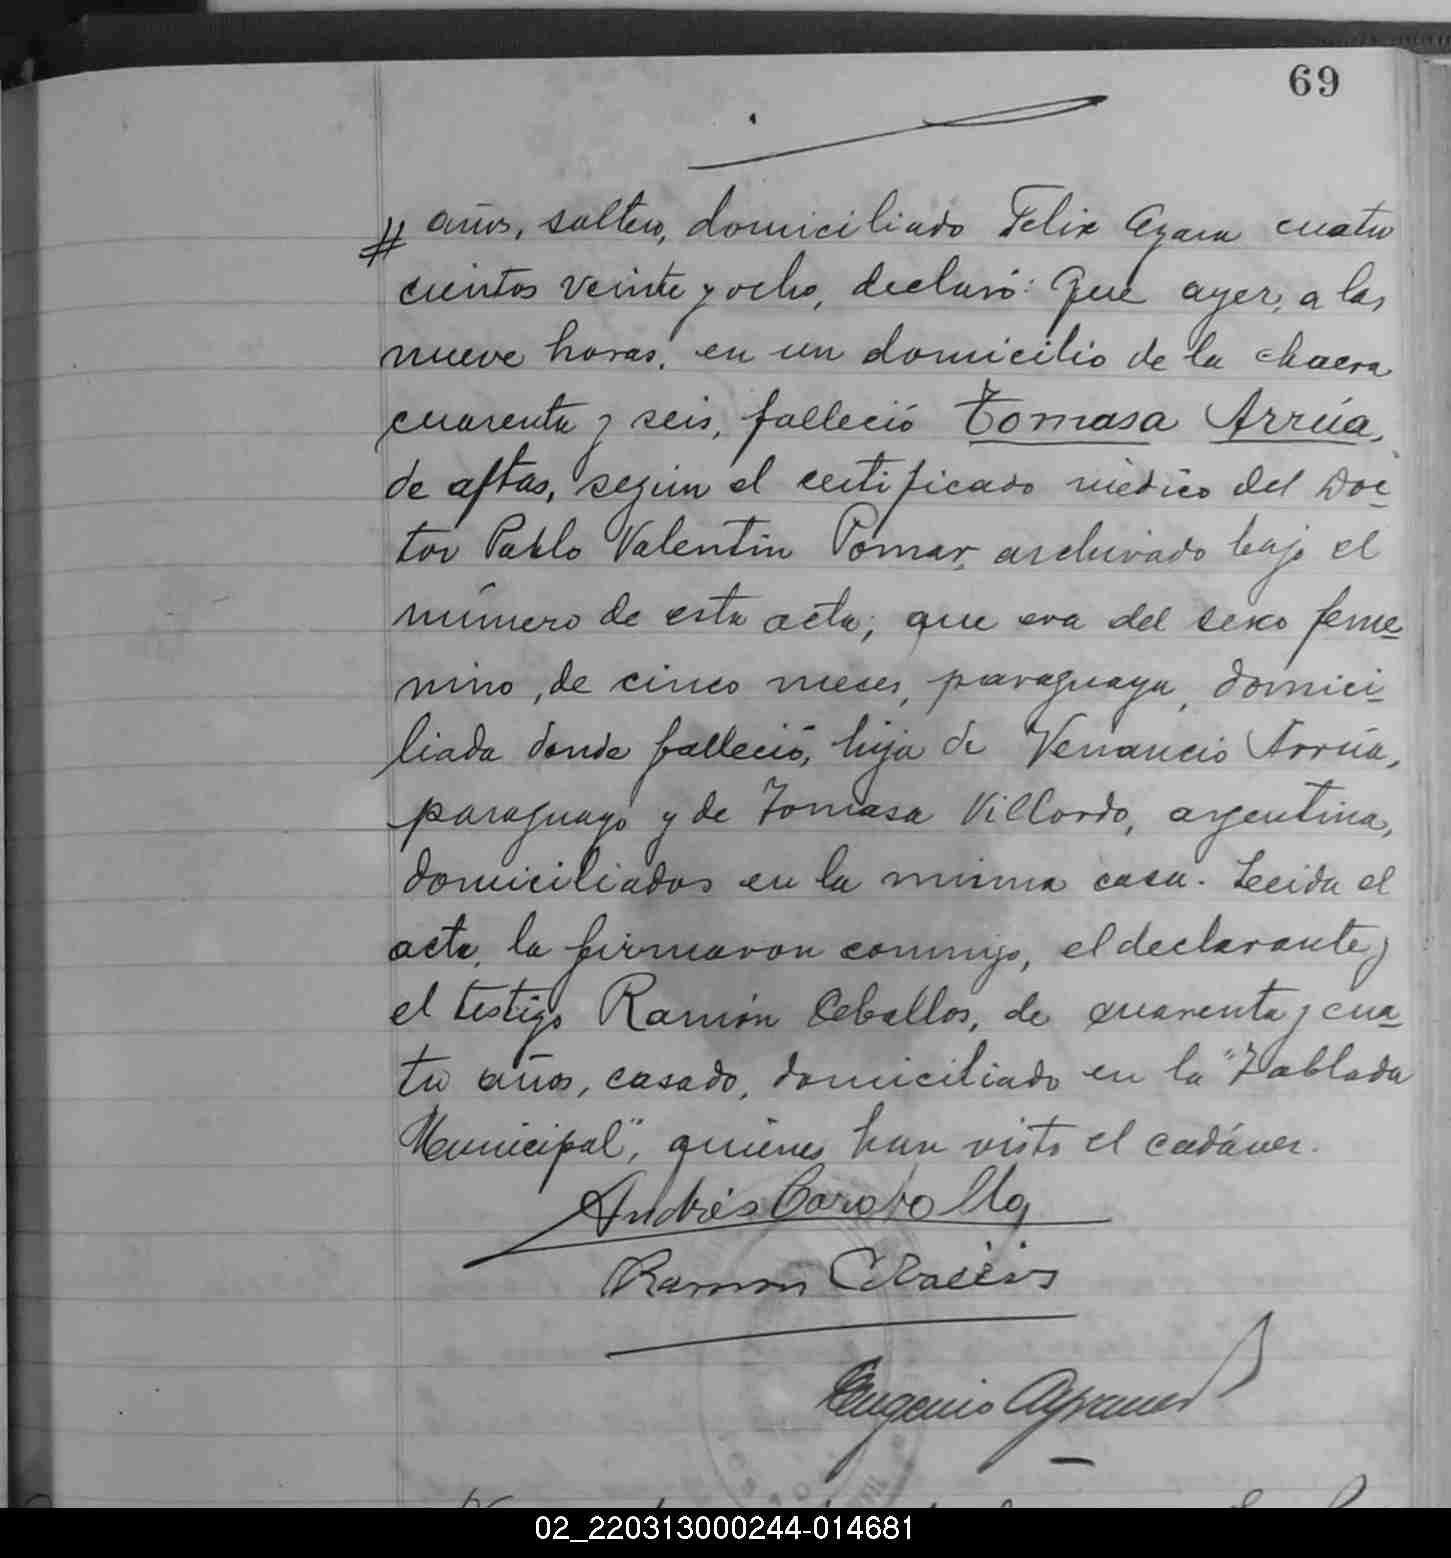 69
# años, soltero, domiciliado Felix Azara cuatro
cientos veinte y ocho, declaró: Que ayer, a las
nueve horas, en un domicilio de la chacra
cuarenta y seis, falleció Tomasa Arrúa,
de aftas, según el certificado médico del Doc
tor Pablo Valentín Pomar, archivado bajo el
número de esta acta; que era del sexo feme
nino, de cinco meses, paraguaya, domici
liada donde falleció, hija de Venancio Arrúa,
paraguayo y de Tomasa Villordo, argentina,
domiciliados en la misma casa. Leida el
acta, la firmaron conmigo, el declarante y
el testigo Ramón Ceballos, de cuarenta y cua
tro años, casado, domiciliado en la "Tablada
Municipal", quienes han visto el cadáver.
Andrés Caraballo
Ramon Ceballos
Eugenio
02_220313000244-014681